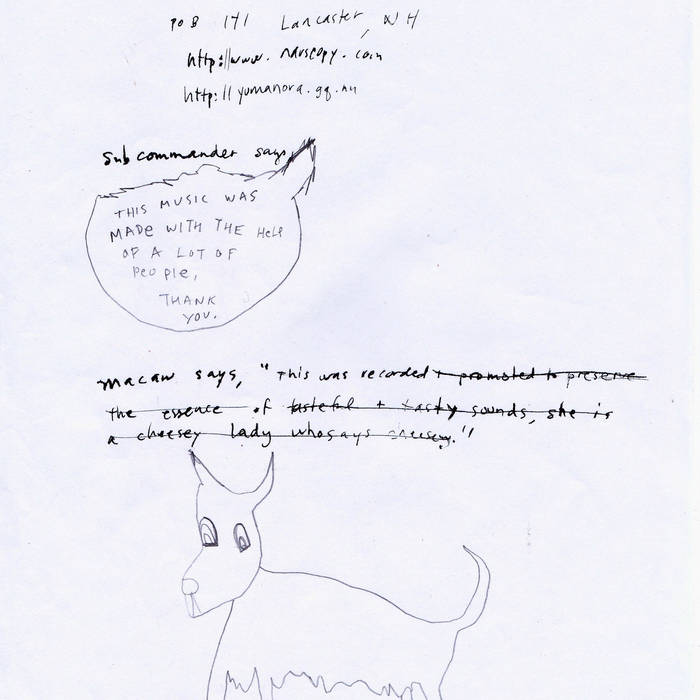 POB 171 Lancaster, NH
http://www.navscopy.com
http://yumanora.gq.nu
Subcommander says,
THIS MUSIC WAS
MADE WITH THE HELP
OF A LOT OF
PeoPle,
THANK
YOU.
macaw says, "This was recorded + promoted to preserve
the essence of tasteful + tasty sounds, she is
a cheesey lady who says cheesey."